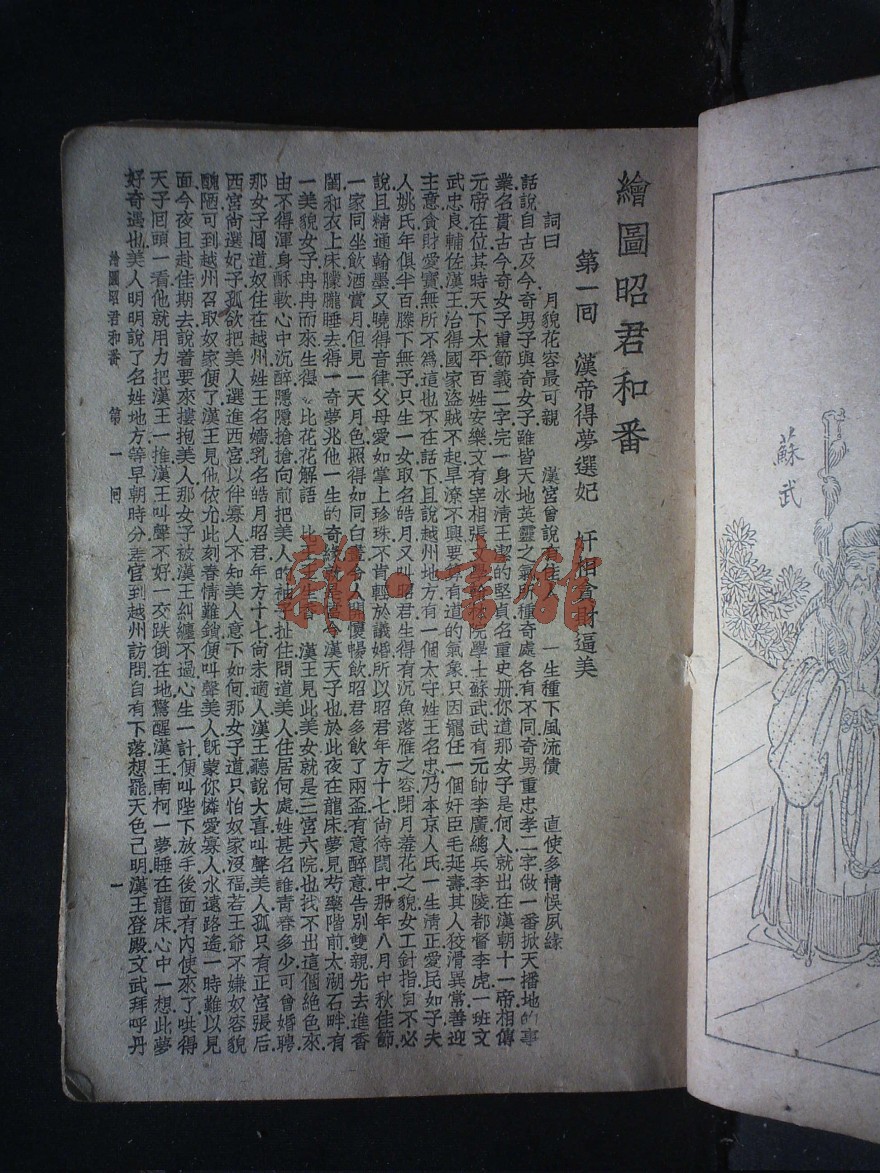 繪圖昭君和番
第一回 漢帝得夢選妃 奸相貪財逼美
詞曰 月貌花容最可親 漢宮曾說有佳人 一生種下風流債 直使多情悞夙緣
話說自古及今奇男子與奇女子雖皆天地英靈之氣所種奇處各有不同奇男重忠孝二字做一番掀天播地的事
業名貫古今奇女子重節義二字完一身冰清玉潔的堅貞名重史册你道那女子是何人就出在漢朝十一帝相傳
元帝在位其時天下太平百姓安樂文有宰相張文學院學士蘇武武有元帥李廣總兵李陵都督李虎一班文
武忠良輔佐漢王治得國家盜賊不起旱潦不興要算有道的氣象只因寵任一個奸臣毛延壽其人狡滑異常善迎
主意貪財愛寶無所不為這也不在話下且說越州地方有一個太守姓王名忠乃本京人氏一生清正愛民如子夫
人姚氏年俱半百膝下無子只生一女取名皓月又叫昭君生得有沉魚落雁之容閉月羞花之貌女工針指自不必
說且精通翰墨又曉得音律父母愛如掌上珍珠不肯輕於議婚所以昭君年方十七尙待閨中那年八月中秋佳節
一家同坐飲酒賞月但見一天月色照得如同白晝各人開懷暢飲昭君多飲了兩盃有意醉意告別雙親先去進香
閨和衣上床朦朧睡去得一奇夢兆他一生的奇緣就是當今漢天子也於此夜在龍床夢見芍藥階前太湖石畔有
一美貌女子冉冉而來生得 比花花解語 比玉玉生香 漢王見此美女就是三宮六院也找不出這個絶色來
由不得渾身酥軟心中沉醉隱隱搶搶向前把美人的袖子扯住問道美人住居何處姓甚名誰青春多少可曾婚聘
那女子囘道奴住在越州姓王名嬙乳名皓月昭君年方十七尙未適人漢王聽說大喜叫聲美人孤只有正宮張后
西宮尙選妃子孤欲把美人選進西宮以伴寡人不知美人意下如何那女子道只怕奴家沒福若王爺不嫌奴容貌
醜陋可到越州召取奴家便了漢王見他依允此刻春情難鎖便叫聲美人旣蒙你憐愛寡人水遠路遙一時難以見
面今夜且赴佳期去說着要來摟抱美人那女子被漢王糾纏不過心生一計便叫陛下放手後面有內使來了哄得
天子囘頭一看他就用力把漢王一推漢王叫聲不好一交跌倒在地驚醒漢王南柯一夢睡在龍床心中一想此夢
好奇遇也美人明明說了名姓地方等早朝時分差官到越州訪問自有下落想罷天色已明漢王登殿文武拜呼丹
繪圖昭君和番 第一回 一
蘇武
雜·書館